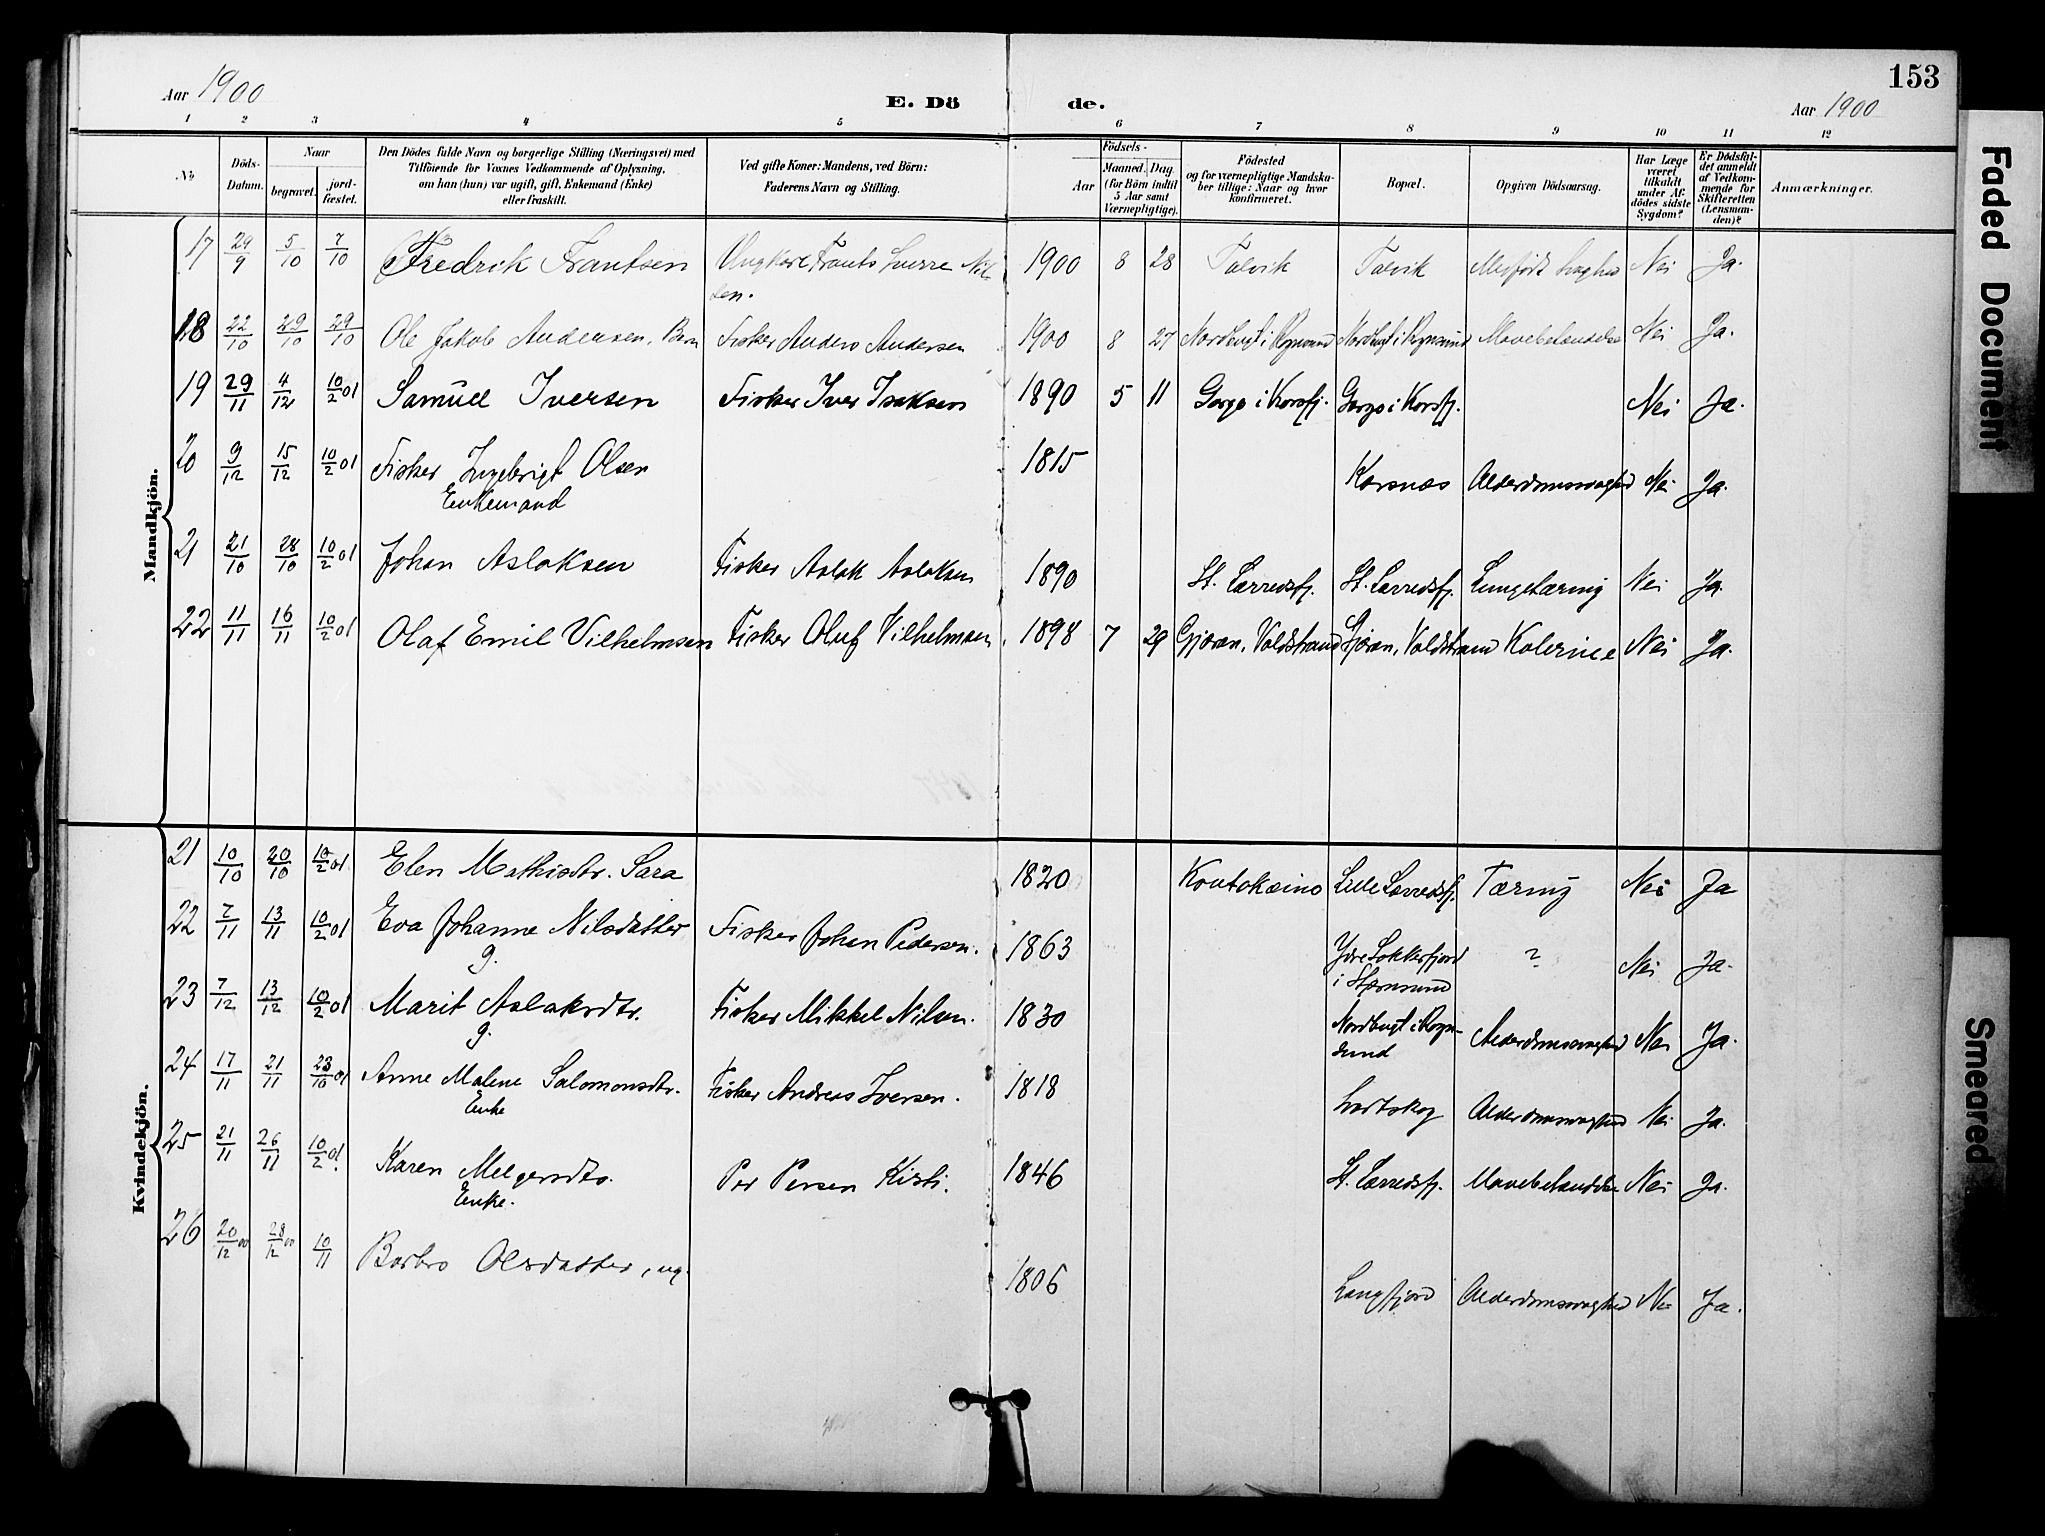 153
Aar 1900
E. Dö de.
Aar 1900
1 2 3 4 5 6 7 8 9 10 11 12
No
Döds-Datum.
Naar
begravet.
jord-fæstet.
Den Dödes fulde Navn og borgerlige Stilling (Næringsvei) med
Tilföiende for Voxnes Vedkommende af Oplysning,
om han (hun) var ugift, gift, Enkemand (Enke)
eller fraskilt.
Ved gifte Koner: Mandens, ved Börn:
Faderens Navn og Stilling.
Födsels-
Aar
Maaned.
Dag.
(for Börn indtil
5 Aar samt
Værnepligtige).
Födested
og for værnepligtige Mandska-
ber tillige: Naar og hvor
konfirmeret.
Bopæl.
Opgiven Dödsaarsag.
Har Læge
været
tilkaldt
under Af-
dödes sidste
Sygdom?
Er Dödsfal-
det anmeldt
af Vedkom-
mende for
Skifteretten
(Lensman-
den)?
Anmærkninger.
Mandkjön.
17 29/9 5/10 7/10 Fredrik Frantsen Ungkarl Frants Sverre Nil- 1900 8 28 Talvik Talvik Medfødt Svaghed Nei Ja.
sen.
18 22/10 29/10 29/10 Ole Jakob Andersen, Barn Fisker Anders Andersen 1900 8 27 Nordbugt i Rognsund Nordbugt i Rognsund Mavebetændelse Nei Ja.
19 29/11 4/12 10/2 01 Samuel Iversen Fisker Iver Isaksen 1890 5 11 Gargo i Korsfj. Gargo i Korsfj. Nei Ja.
20 9/12 15/12 10/2 01 Fisker Ingebrigt Olsen 1815 Korsnæs Alderdomssvaghed Nei Ja.
Enkemand
21 21/10 28/10 10/2 01 Johan Aslaksen Fisker Aslak Aslaksen 1890 St. Lærredsfj. St. Lærredsfj. Lungetæring Nei Ja.
22 11/11 16/11 10/2 01 Olaf Emil Vilhelmsen Fisker Oluf Vilhelmsen. 1898 7 29 Gjøran, Valdstrand Gjøran, Valdstrand Kolerine Nei Ja.
Kvindekjön.
21 10/10 20/10 10/2 01 Elen Mathisdtr. Sara 1820 Koutokæino Lille Lærredsfj. Tæring Nei Ja
22 7/11 13/11 10/2 01 Eva Johanne Nilsdatter Fisker Johan Pedersen. 1863 Ydre Lokkerfjord ? Nei Ja.
g. i Stjernsund
23 7/12 13/12 10/2 01 Marit Aslaksdtr. Fisker Mikkel Nilsen. 1830 Nordbugt i Rogn- Alderdomssvaghed Nei Ja.
g. sund
24 17/11 21/11 23/10 01 Anne Malene Salomonsdtr. Fisker Andreas Iversen. 1818 Svartskog Alderdomssvaghed Nei Ja.
Enke
25 21/11 26/11 10/2 01. Karen Melgersdtr. Per Persen Kisti. 1846 St. Lærredsfj. Mavebetændelse Nei Ja.
Enke.
26 20/12 00 28/12 00 10/11 Barbro Olsdatter, ug. 1806 Langfjord Alderdomssvaghed Nei Ja.
Faded Document
Smeared